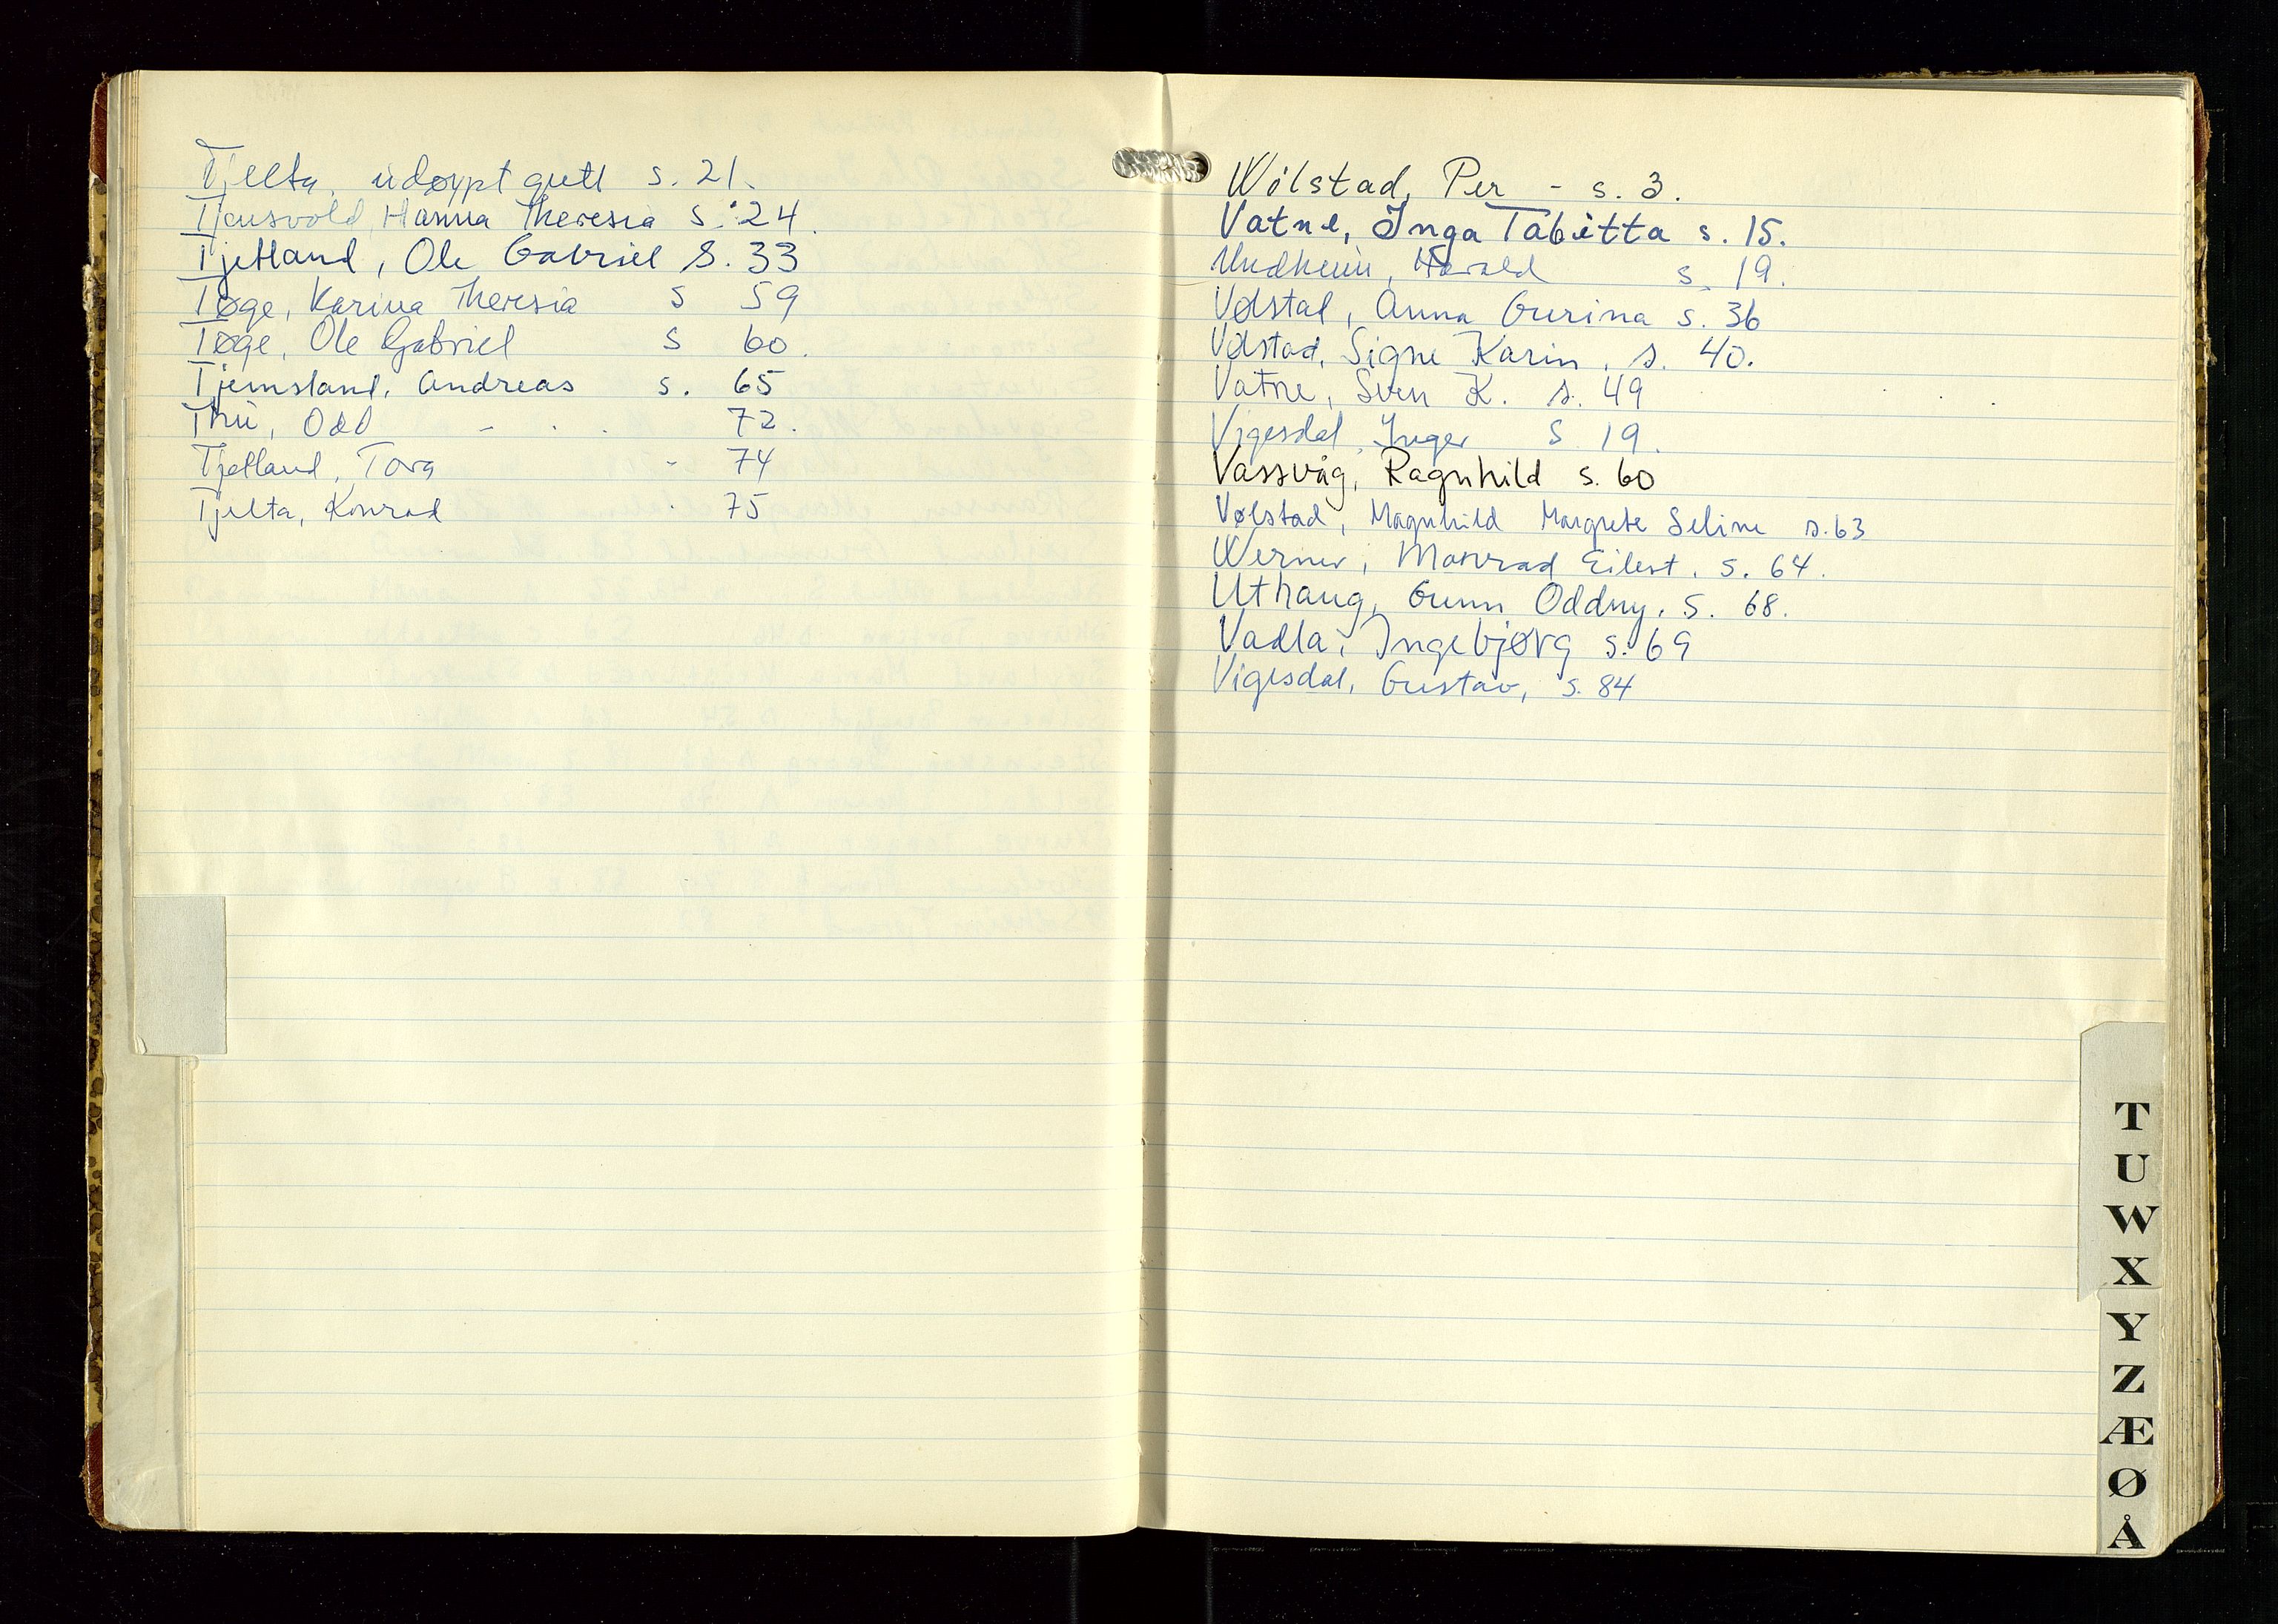 Tjelta, udøypt gutt s. 21.
Tjensvold, Hanna Theresia s. 24.
Tjetland, Ole Gabriel S. 33
Tøge, Karina Theresia s 59
Tøge, Ole Gabriel s 60.
Tjemsland, Andreas s. 65
Thu, Odd - . . 72.
Tjetland, Tora - 74
Tjelta, Konrad . 75
Wølstad, Per - s. 3.
Vatne, Inga Tabitta s. 15.
Undheim, Harald s. 19.
Vølstad, Anna Gurina s. 36
Vølstad, Signe Karin, s. 40.
Vatne, Sven K. s. 49
Vigesdal, Inger S 19.
Vassvåg, Ragnhild s. 60
Vølstad, Magnhild Margrete Seline s. 63
Werner, Monrad Eilert. s. 64.
Uthaug, Gunn Oddny. s. 68.
Vadla, Ingebjørg s. 69
Vigesdal, Gustav, s. 84
T
U
W
X
Y
Z
Æ
Ø
Å